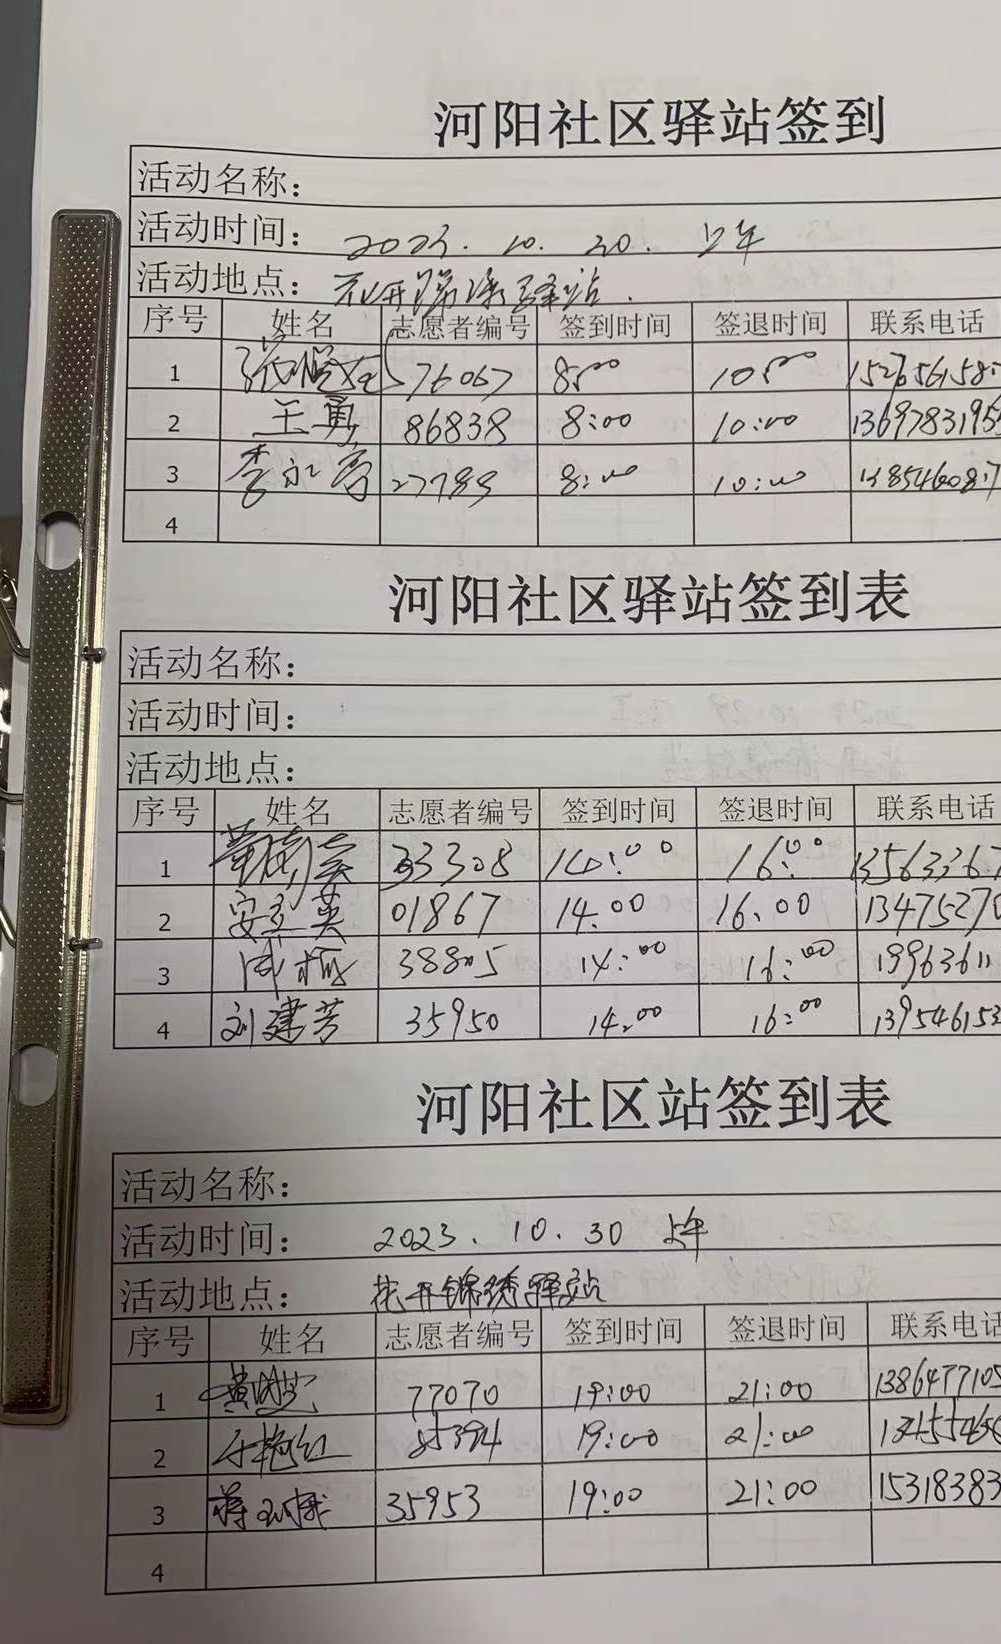 河阳社区驿站签到
活动名称：
活动时间： 2023. 10. 20. 上午
活动地点： 花开锦绣驿站.
序号 姓名 志愿者编号 签到时间 签退时间 联系电话
1 576067 8:00 10:00
2 王勇 86838 8:00 10:00 1369783195
3 李永 27789 8:00 10:00
4
河阳社区驿站签到表
活动名称：
活动时间：
活动地点：
序号 姓名 志愿者编号 签到时间 签退时间 联系电话
1 33308 14:00 16:00 13563367
2 安立英 01867 14.00 16.00 13475270
3 周梅 38805 14:00 16:00 19963611
4 刘建芳 35950 14.00 16:00 139546153
河阳社区站签到表
活动名称：
活动时间： 2023. 10. 30 上午
活动地点： 花开锦绣驿站
序号 姓名 志愿者编号 签到时间 签退时间 联系电话
1 77070 19:00 21:00 1386477105
2 于艳红 85394 19:00 21:00
3 35953 19:00 21:00 15318383
4